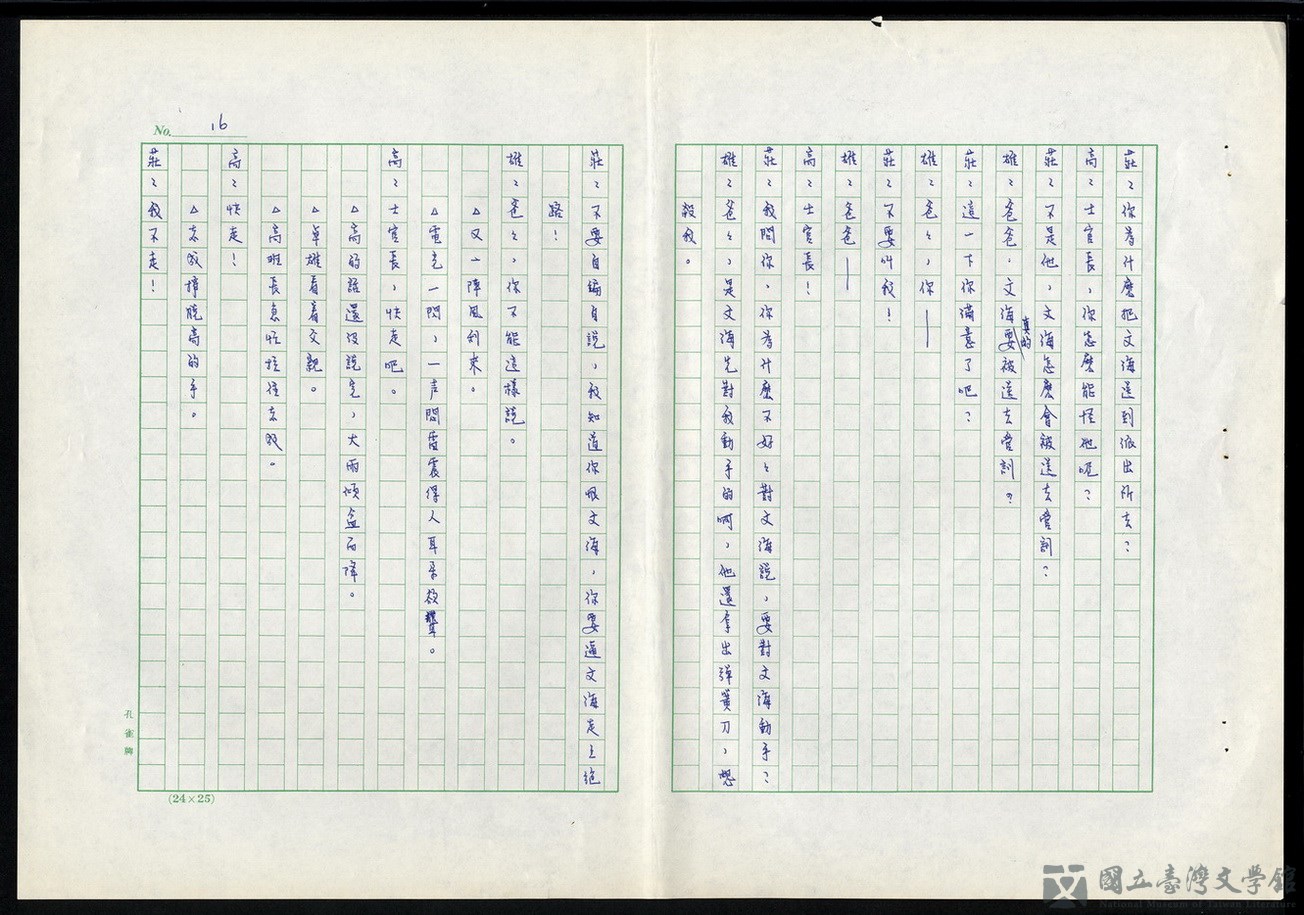 莊：你為什麼把文海送到派出所去？
高：士官長，你怎麼能怪他呢？
莊：不是他，文海怎麼會被送去管訓？
雄：爸爸，文海真的被送去管訓？
莊：這一下你滿意了吧？
雄：爸々，你——
莊：不要叫我！
雄：爸爸——
高：士官長！
莊：我問你，你為什麼不好々對文海說，要對文海動手？
雄：爸々，是文海先對我動手的啊，他還拿出彈簧刀，想
殺我。
莊：不要自編自說，我知道你恨文海，你要逼文海走上絕
路！
雄：爸々，你不能這樣說。
△又一陣風刮來。
△電光一閃，一声悶雷震得人耳朵欲聾。
高：士官長，快走吧。
△高的話還沒說完，大雨傾盆而降。
△卓雄看着父親。
△高班長急忙拉住志成。
高：快走！
△志成掙脫高的手。
莊：我不走！
No. 16
孔雀牌
(24×25)
國立臺灣文學館
National Museum of Taiwan Literature